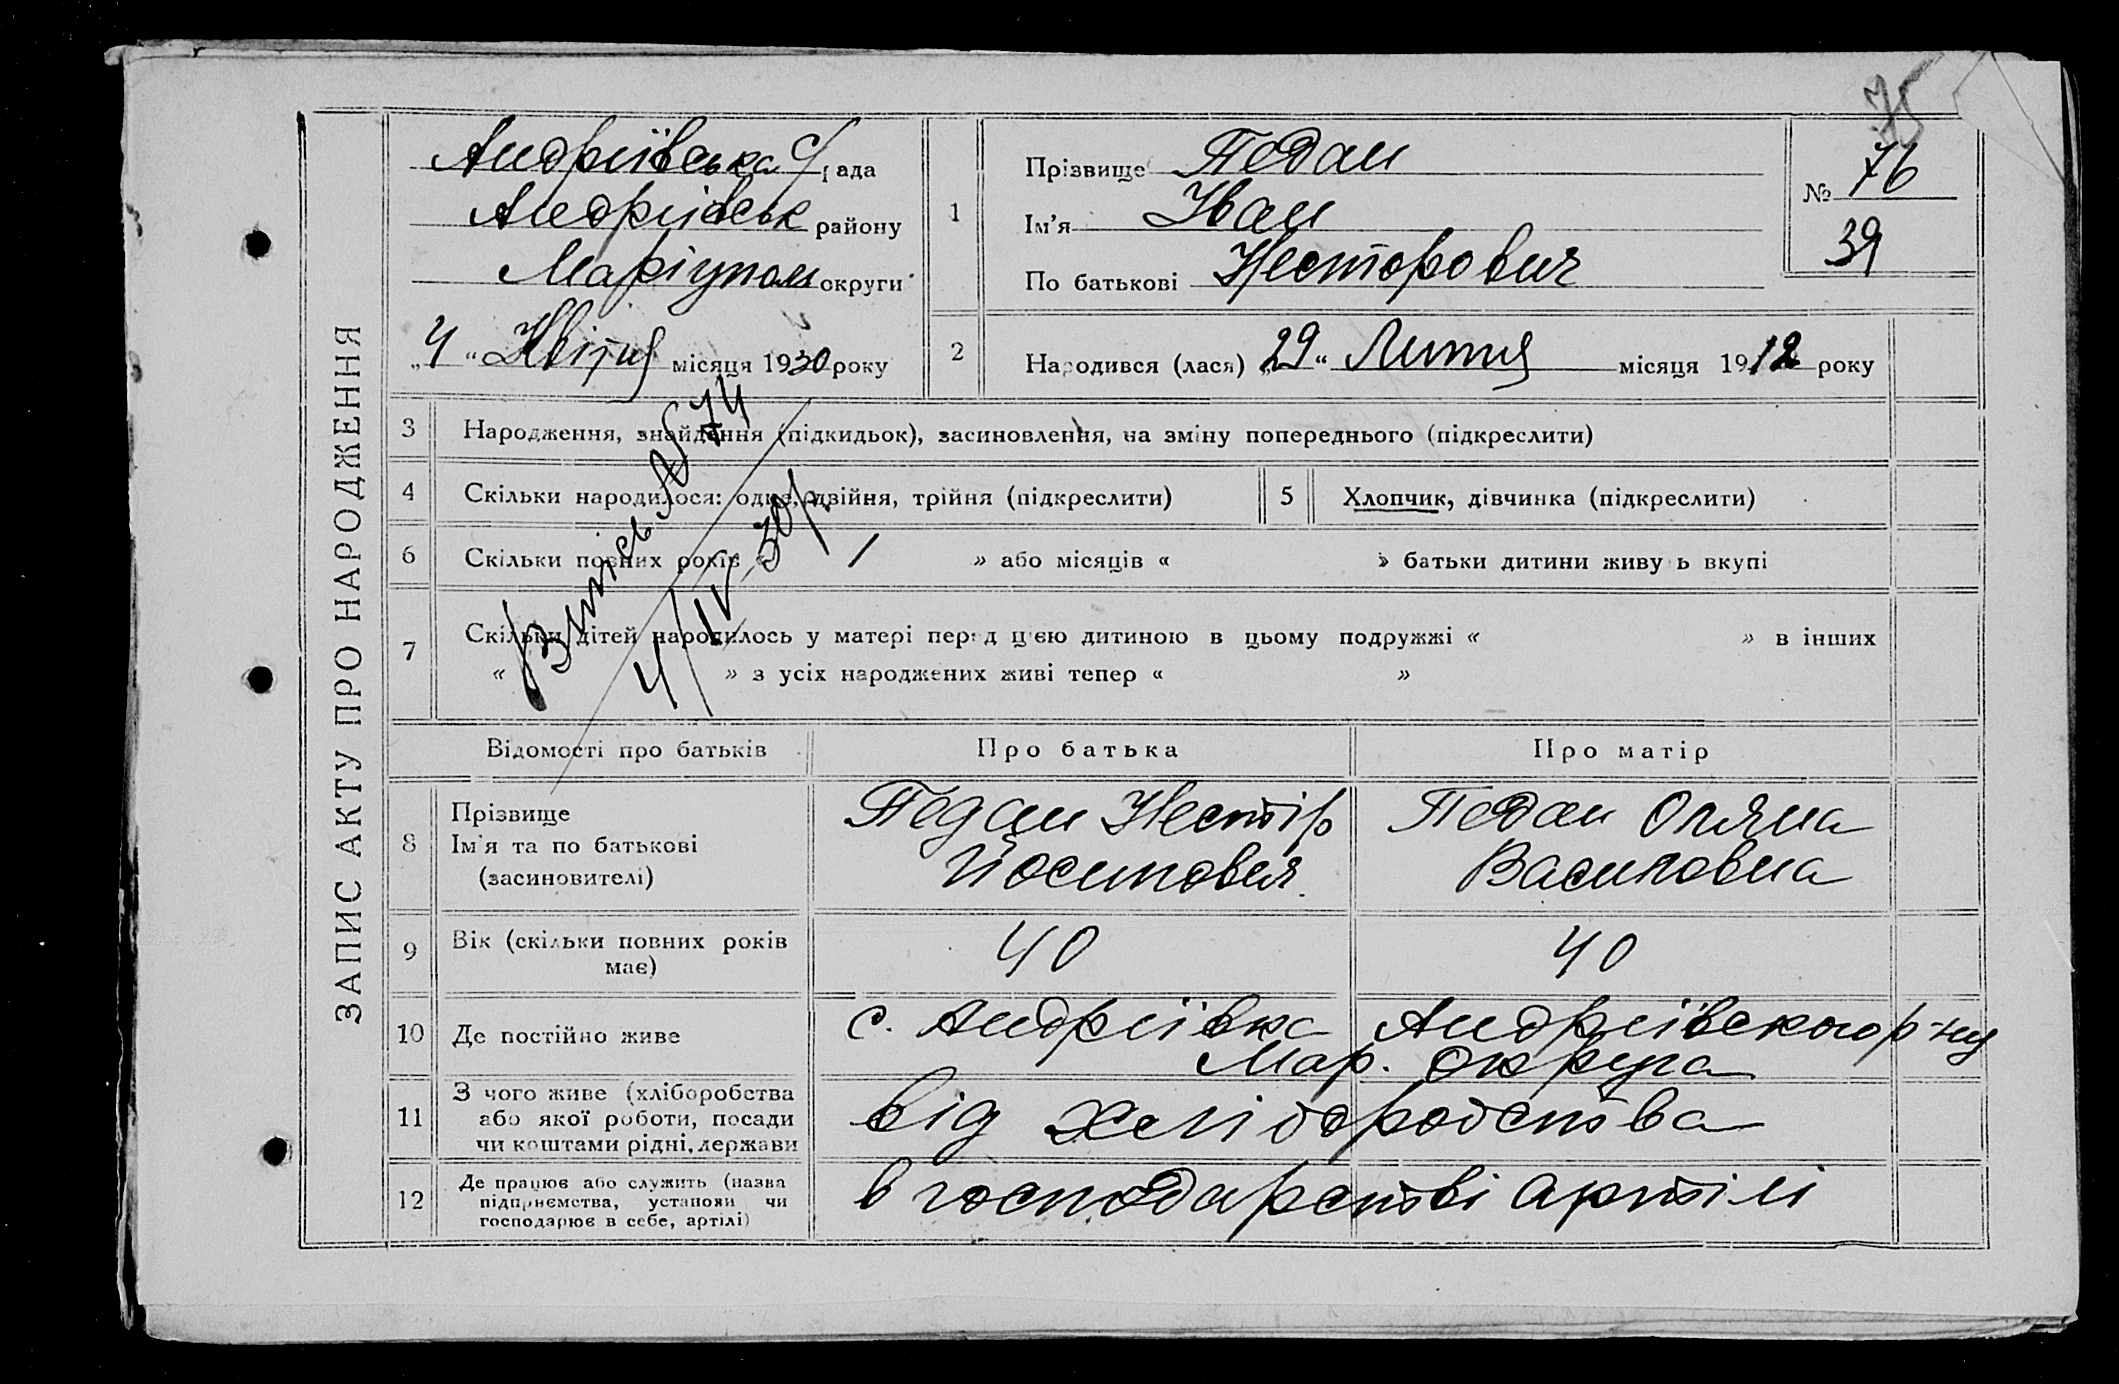 ЗАПИС АКТУ ПРО НАРОДЖЕННЯ
Андріївська с/рада
Андріївськ району
Маріупол округи
„4“ Квітня місяця 1930 року
1
Прізвище Педан
Ім'я Іван
По батькові Несторович
75
№ 76
39
2
Народився (лася) „29“ Лютня місяця 1912 року
3 Народження, знайдення (підкидьок), засиновлення, на зміну попереднього (підкреслити)
4 Скільки народилося: одне, двійня, трійня (підкреслити)
5 Хлопчик, дівчинка (підкреслити)
6 Скільки повних років « / » або місяців « » батьки дитини живуть вкупі
7 Скільки дітей народилось у матері перед цією дитиною в цьому подружжі « » в інших
« » з усіх народжених живі тепер « »
№ 74
4/IV 30р.
Відомості про батьків Про батька Про матір
8 Прізвище
Ім'я та по батькові
(засиновителі)
Педан Нестір
Йосипович
Педан Оляна
Василовна
9 Вік (скільки повних років
має)
40 40
10 Де постійно живе
с. Андріївка Андріївского р-ну
Мар. округа
11 З чого живе (хліборобства
або якої роботи, посади
чи коштами рідні, держави
від хліборобства
12 Де працює або служить (назва
підприємства, установи чи
господарює в себе, артілі)
в господарстві артілі